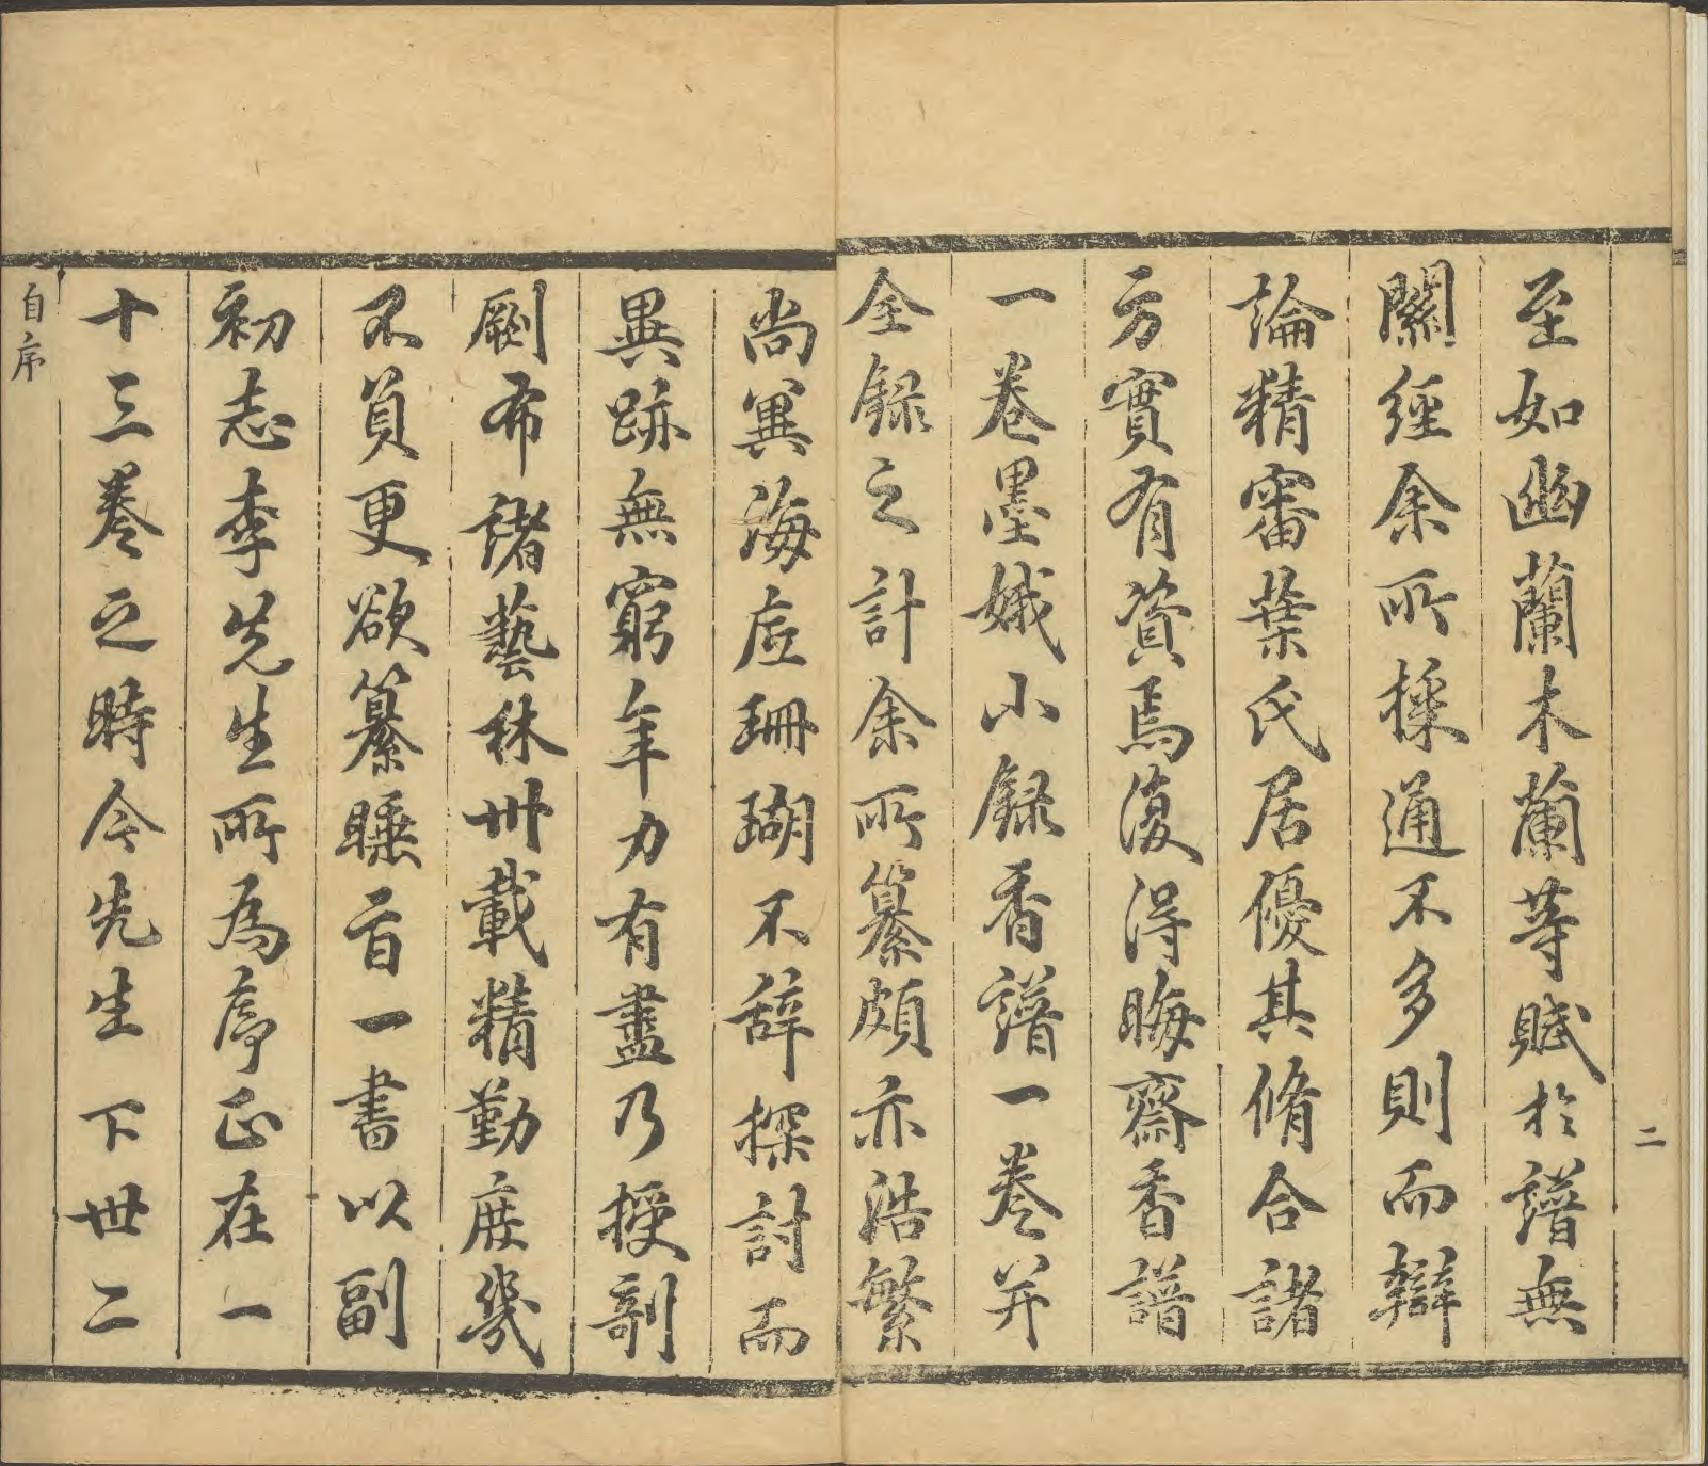 二
至如幽蘭木蘭等賦於譜無
關經余所採通不多則而辯
論精審葉氏居優其脩合諸
方實有資焉復得晦齋香譜
一卷墨娥小録香譜一卷并
全録之計余所纂頗亦浩繁
尚冀海底珊瑚不辞探討而
異跡無窮年力有盡乃授剞
劂布諸藝林卅載精勤庶幾
不負更欲纂睡旨一書以副
初志李先生所為序正在一
十三卷之時今先生下世二
自序